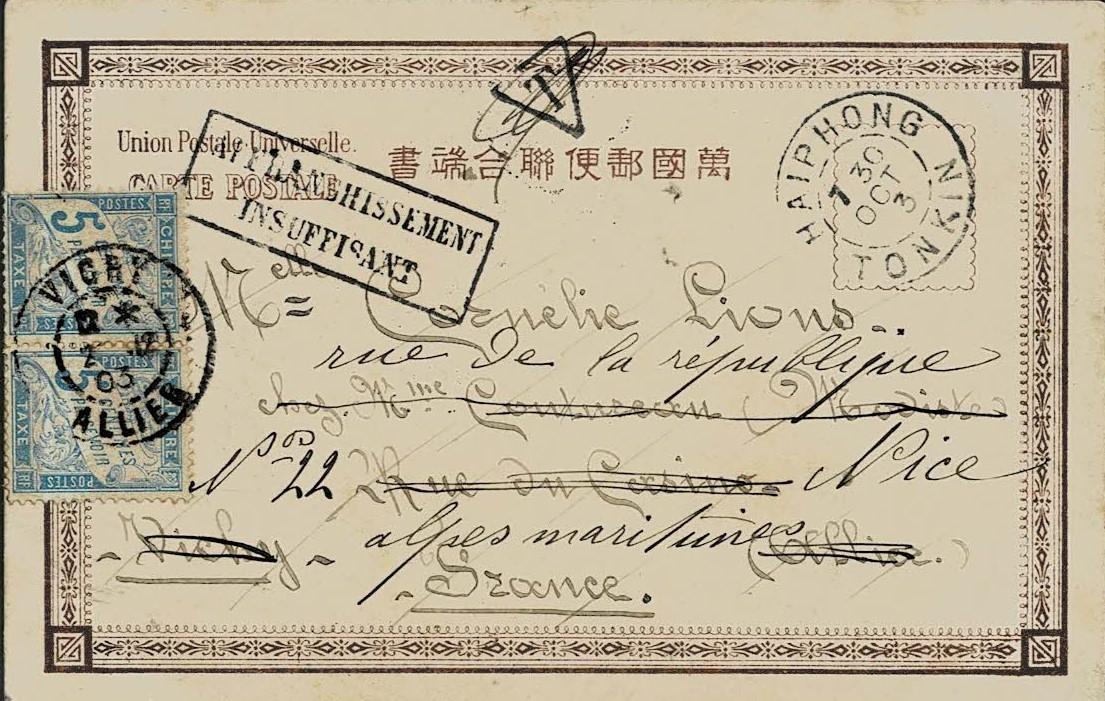 T
Union Postale Universelle.
CARTE POSTALE
書端合聯便郵國萬
AFFRANCHISSEMENT
INSUFFISANT
HAIPHONG TONKIN
7
30
OCT
3
POSTES
5
CHIFFRE
TAXE
RF
VICHY
2
03
ALLIER
POSTES
TAXE
POSTES
RF
Melle Cornélie Lions.
rue de la république
chez Mme (Modiste
No 22 Rue du Casino Nice
- Vichy - alpes maritimes (Allier.)
- France.